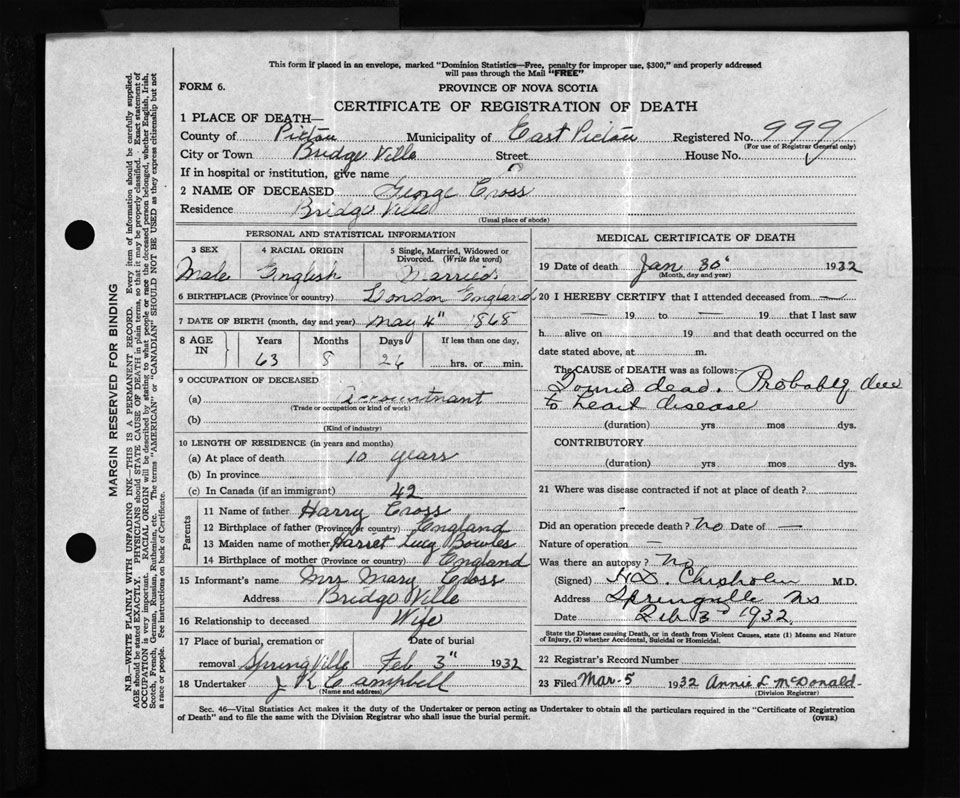 This form if placed in an envelope, marked "Dominion Statistics—Free, penalty for improper use, $300," and properly addressed
will pass through the Mail "FREE"
FORM 6.
PROVINCE OF NOVA SCOTIA
CERTIFICATE OF REGISTRATION OF DEATH
1 PLACE OF DEATH—
County of Pictou Municipality of East Pictou Registered No. 999
(For use of Registrar General only)
City or Town Bridge Ville Street House No.
If in hospital or institution, give name
2 NAME OF DECEASED George Cross
Residence Bridge Ville
(Usual place of abode)
PERSONAL AND STATISTICAL INFORMATION
3 SEX 4 RACIAL ORIGIN 5 Single, Married, Widowed or
Divorced. (Write the word)
Male English Married
6 BIRTHPLACE (Province or country) London England
7 DATE OF BIRTH (month, day and year) May 4" 1868
8 AGE IN Years Months Days If less than one day,
63 8 26 hrs. or min.
9 OCCUPATION OF DECEASED
(a) Accountnant
(Trade or occupation or kind of work)
(b)
(Kind of industry)
10 LENGTH OF RESIDENCE (in years and months)
(a) At place of death 10 years
(b) In province
(c) In Canada (if an immigrant) 42
Parents
11 Name of father Harry Cross
12 Birthplace of father (Province or country) England
13 Maiden name of mother Harriet Lucy Bowles
14 Birthplace of mother (Province or country) England
15 Informant's name Mrs Mary Cross
Address Bridge Ville
16 Relationship to deceased Wife
17 Place of burial, cremation or Date of burial
removal SpringVille Feb 3" 1932
18 Undertaker J K Campbell
(Name and address)
MEDICAL CERTIFICATE OF DEATH
19 Date of death Jan 30" 1932
(Month, day and year)
20 I HEREBY CERTIFY that I attended deceased from —
— 19 to — 19 that I last saw
h alive on 19 and that death occurred on the
date stated above, at m.
The CAUSE OF DEATH was as follows:
Found dead. Probably due
to heart disease
(duration) yrs mos dys.
CONTRIBUTORY
(duration) yrs mos dys.
21 Where was disease contracted if not at place of death?
Did an operation precede death? No Date of —
Nature of operation —
Was there an autopsy? No
(Signed) H.D. Chisholm M.D.
Address Springville NS
Date Feb 3rd 1932
State the Disease causing Death, or in death from Violent Causes, state (1) Means and Nature
of Injury, (2) whether Accidental, Suicidal or Homicidal.
22 Registrar's Record Number
23 Filed Mar-5 1932 Annie L McDonald
(Division Registrar)
Sec. 46—Vital Statistics Act makes it the duty of the Undertaker or person acting as Undertaker to obtain all the particulars required in the "Certificate of Registration
of Death" and to file the same with the Division Registrar who shall issue the burial permit.
(OVER)
MARGIN RESERVED FOR BINDING
N.B.—WRITE PLAINLY WITH UNFADING INK—THIS IS A PERMANENT RECORD. Every item of information should be carefully supplied.
AGE should be stated EXACTLY. PHYSICIANS should STATE CAUSE OF DEATH in plain terms, so that it may be properly classified. Exact statement of
OCCUPATION is very important. RACIAL ORIGIN will be described by stating to what people or race the deceased person belonged, whether English, Irish,
Scotch, French, German, Russian, Ruthenian, etc. The terms "AMERICAN" or "CANADIAN" SHOULD NOT BE USED as they express citizenship but not
a race or people. See instructions on back of Certificate.